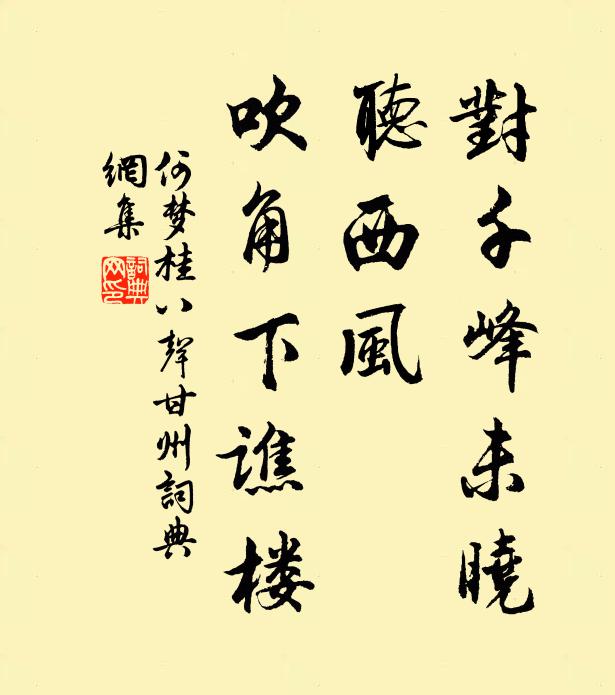 對千峰未曉
聽西風
吹角下譙楼
何梦桂八聲甘州詞典
網集
詞典
网印